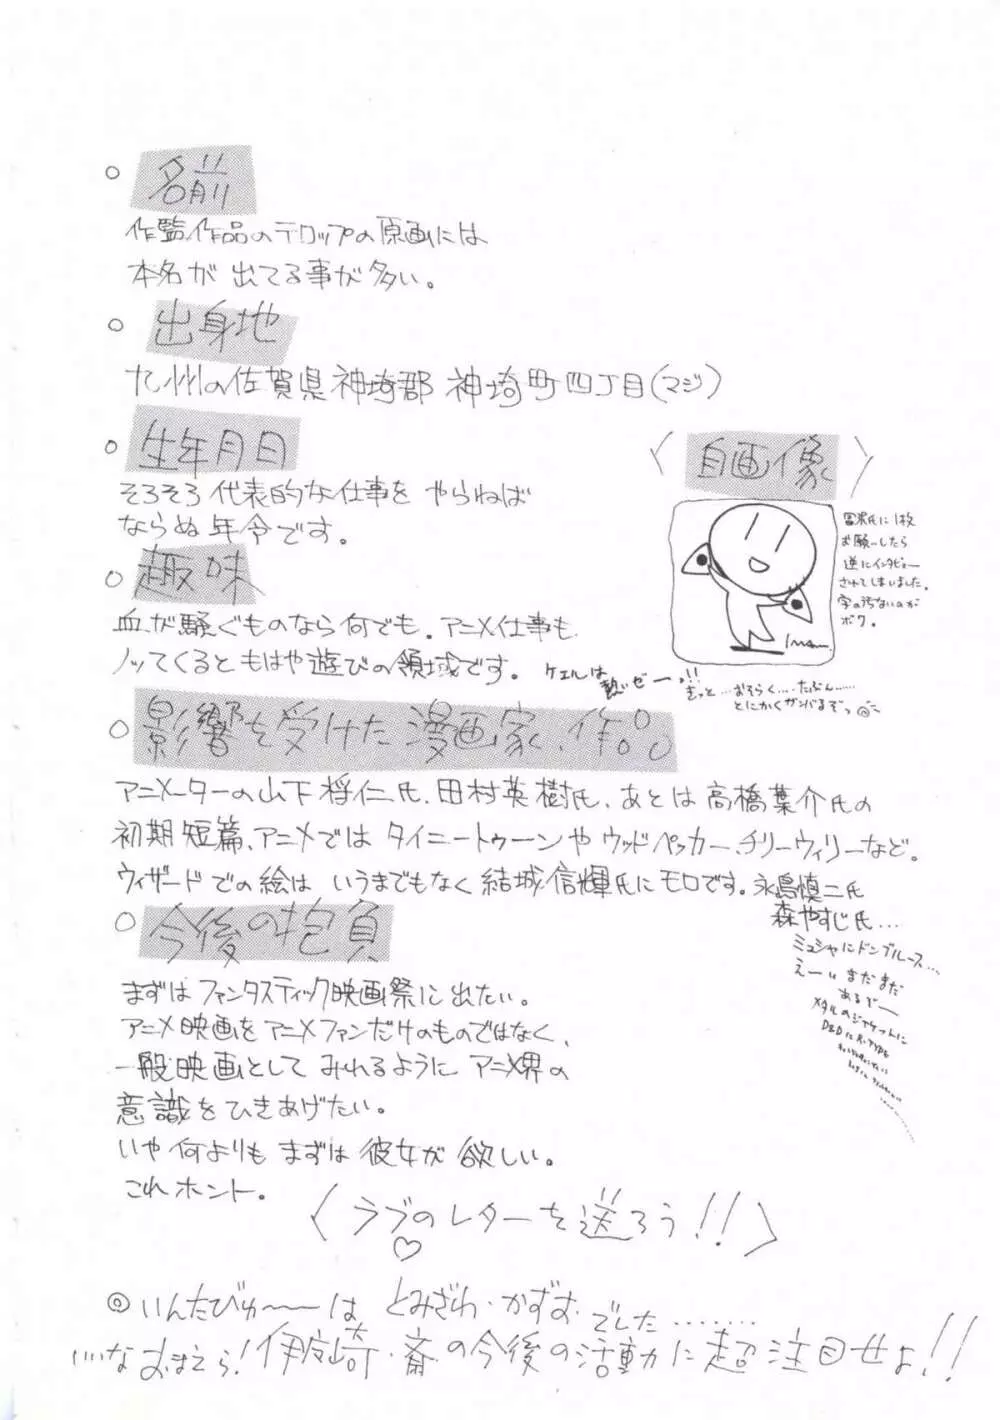 ○ 名前
作監作品のテロップの原画には
本名が出てる事が多い。
○ 出身地
九州の佐賀県神埼郡神埼町四丁目(マジ)
○ 生年月日
そろそろ代表的な仕事をやらねば
ならぬ年令です。
○ 趣味
血が騒ぐものなら何でも。アニメ仕事も
ノッてくるともはや遊びの領域です。
〈自画像〉
冨沢氏に1枚
お願いしたら
逆にインタビュー
されてしまいました。
字の汚ないのが
ボク。
ケェルは
熱いぜーっ!!
きっと…おそらく…たぶん……
とにかくガンバるぞっ
○ 影響を受けた漫画家、作品
アニメーターの山下将仁氏、田村英樹氏、あとは高橋葉介氏の
初期短篇、アニメではタイニートゥーンやウッドペッカー、チリーウィリーなど。
ウィザードでの絵はいうまでもなく結城信輝氏にモロです。永島慎二氏
森やすじ氏…
ミュシャにドンブルース…
えーいまだまだ
あるぞー
メタルのジャケットに
○ 今後の抱負
まずはファンタスティック映画祭に出たい。
アニメ映画をアニメファンだけのものではなく、
一般映画としてみれるようにアニメ界の
意識をひきあげたい。
いや何よりもまずは彼女が欲しい。
これホント。
〈ラブ♡のレターを送ろう!!〉
◎いんたびゅ〜〜はとみざわ・かずおでした………
いいなおまえら!伊崎・斎の今後の活動に超注目せよ!!